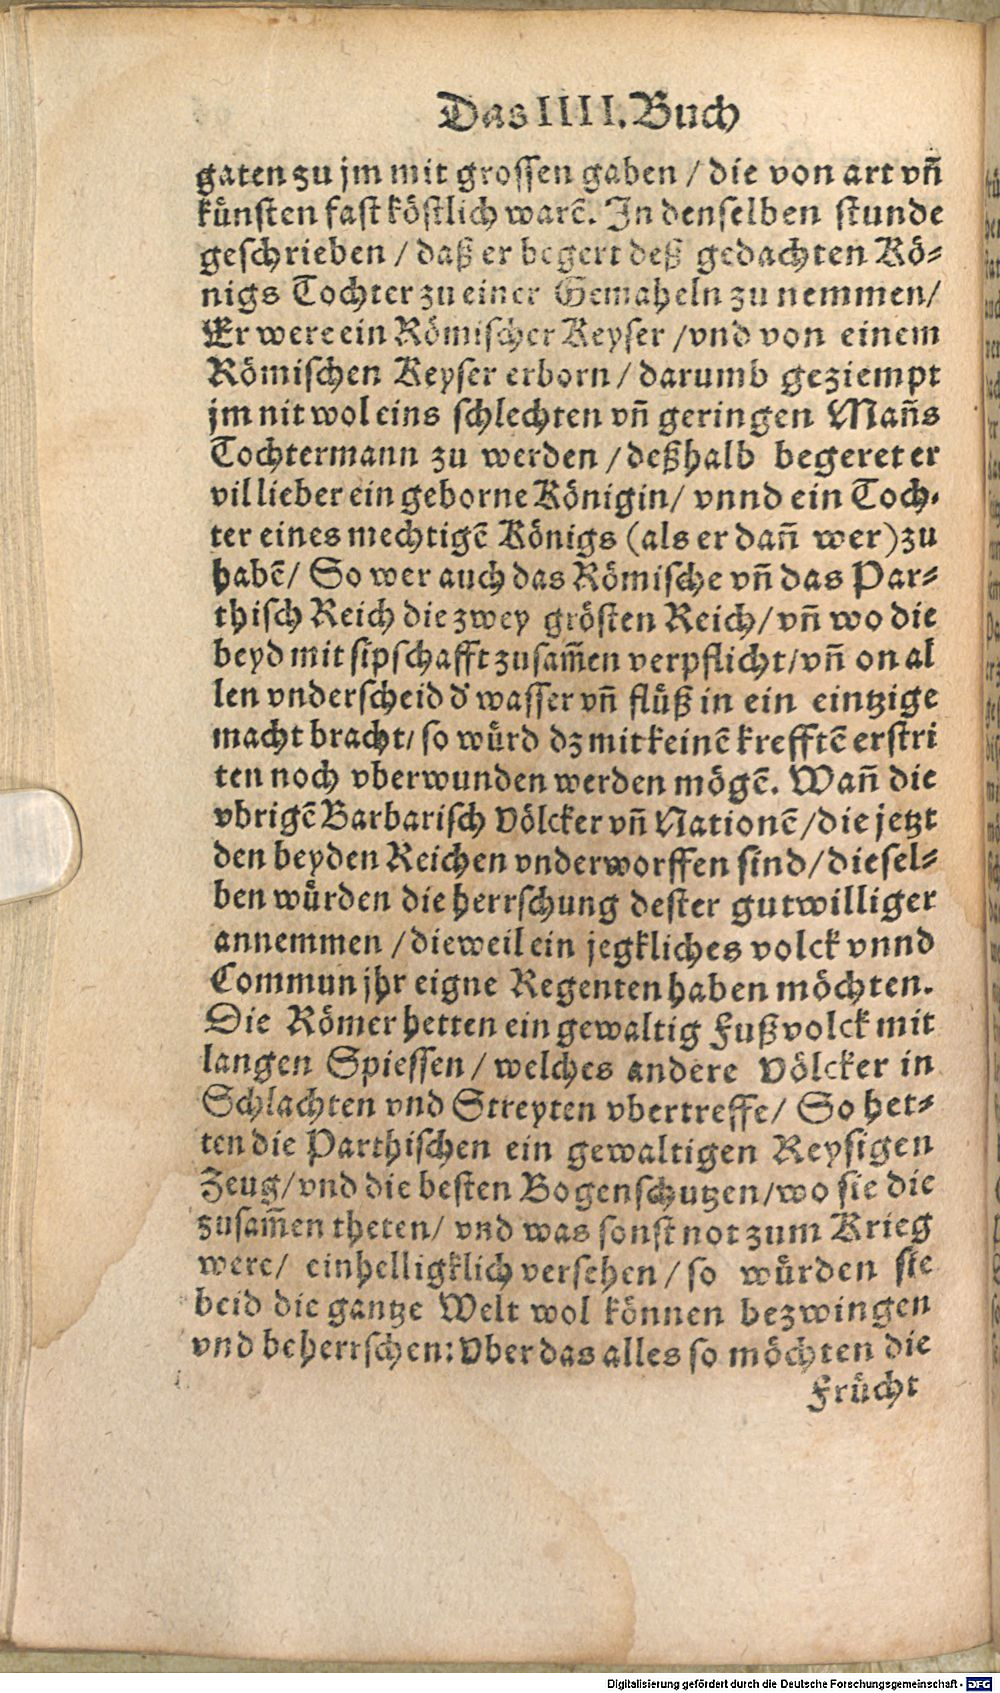 Das IIII. Buch
gaten zu jm mit grossen gaben / die von art vñ
künsten fast köstlich warẽ. In denselben stunde
geschrieben / daß er begert deß gedachten Kö-
nigs Tochter zu einer Gemaheln zu nemmen/
Er were ein Römischer Keyser /vnd von einem
Römischen Keyser erborn / darumb geziempt
jm nit wol eins schlechten vñ geringen Mañs
Tochtermann zu werden /deßhalb begeret er
vil lieber ein geborne Königin/ vnnd ein Toch-
ter eines mechtigẽ Königs (als er dañ wer) zu
habẽ/ So wer auch das Römische vñ das Par-
thisch Reich die zwey grösten Reich/ vñ wo die
beyd mit sipschafft zusam̃en verpflicht/vñ on al
len vnderscheid d' wasser vñ flüß in ein eintzige
macht bracht/ so würd dz mit keinẽ krefftẽ erstri
ten noch vberwunden werden mögẽ. Wañ die
vbrigẽ Barbarisch Völcker vñ Nationẽ/die jetzt
den beyden Reichen vnderworffen sind/ diesel-
ben würden die herrschung dester gutwilliger
annemmen /dieweil ein jegkliches volck vnnd
Commun jhr eigne Regenten haben möchten.
Die Römer hetten ein gewaltig Fußvolck mit
langen Spiessen / welches andere Völcker in
Schlachten vnd Streyten vbertreffe/ So het-
ten die Parthischen ein gewaltigen Reysigen
Zeug/vnd die besten Bogenschutzen/wo sie die
zusam̃en theten/ vnd was sonst not zum Krieg
were/ einhelligklich versehen / so würden sie
beid die gantze Welt wol können bezwingen
vnd beherrschen: Vber das alles so möchten die
Frücht
Digitalisierung gefördert durch die Deutsche Forschungsgemeinschaft - DFG